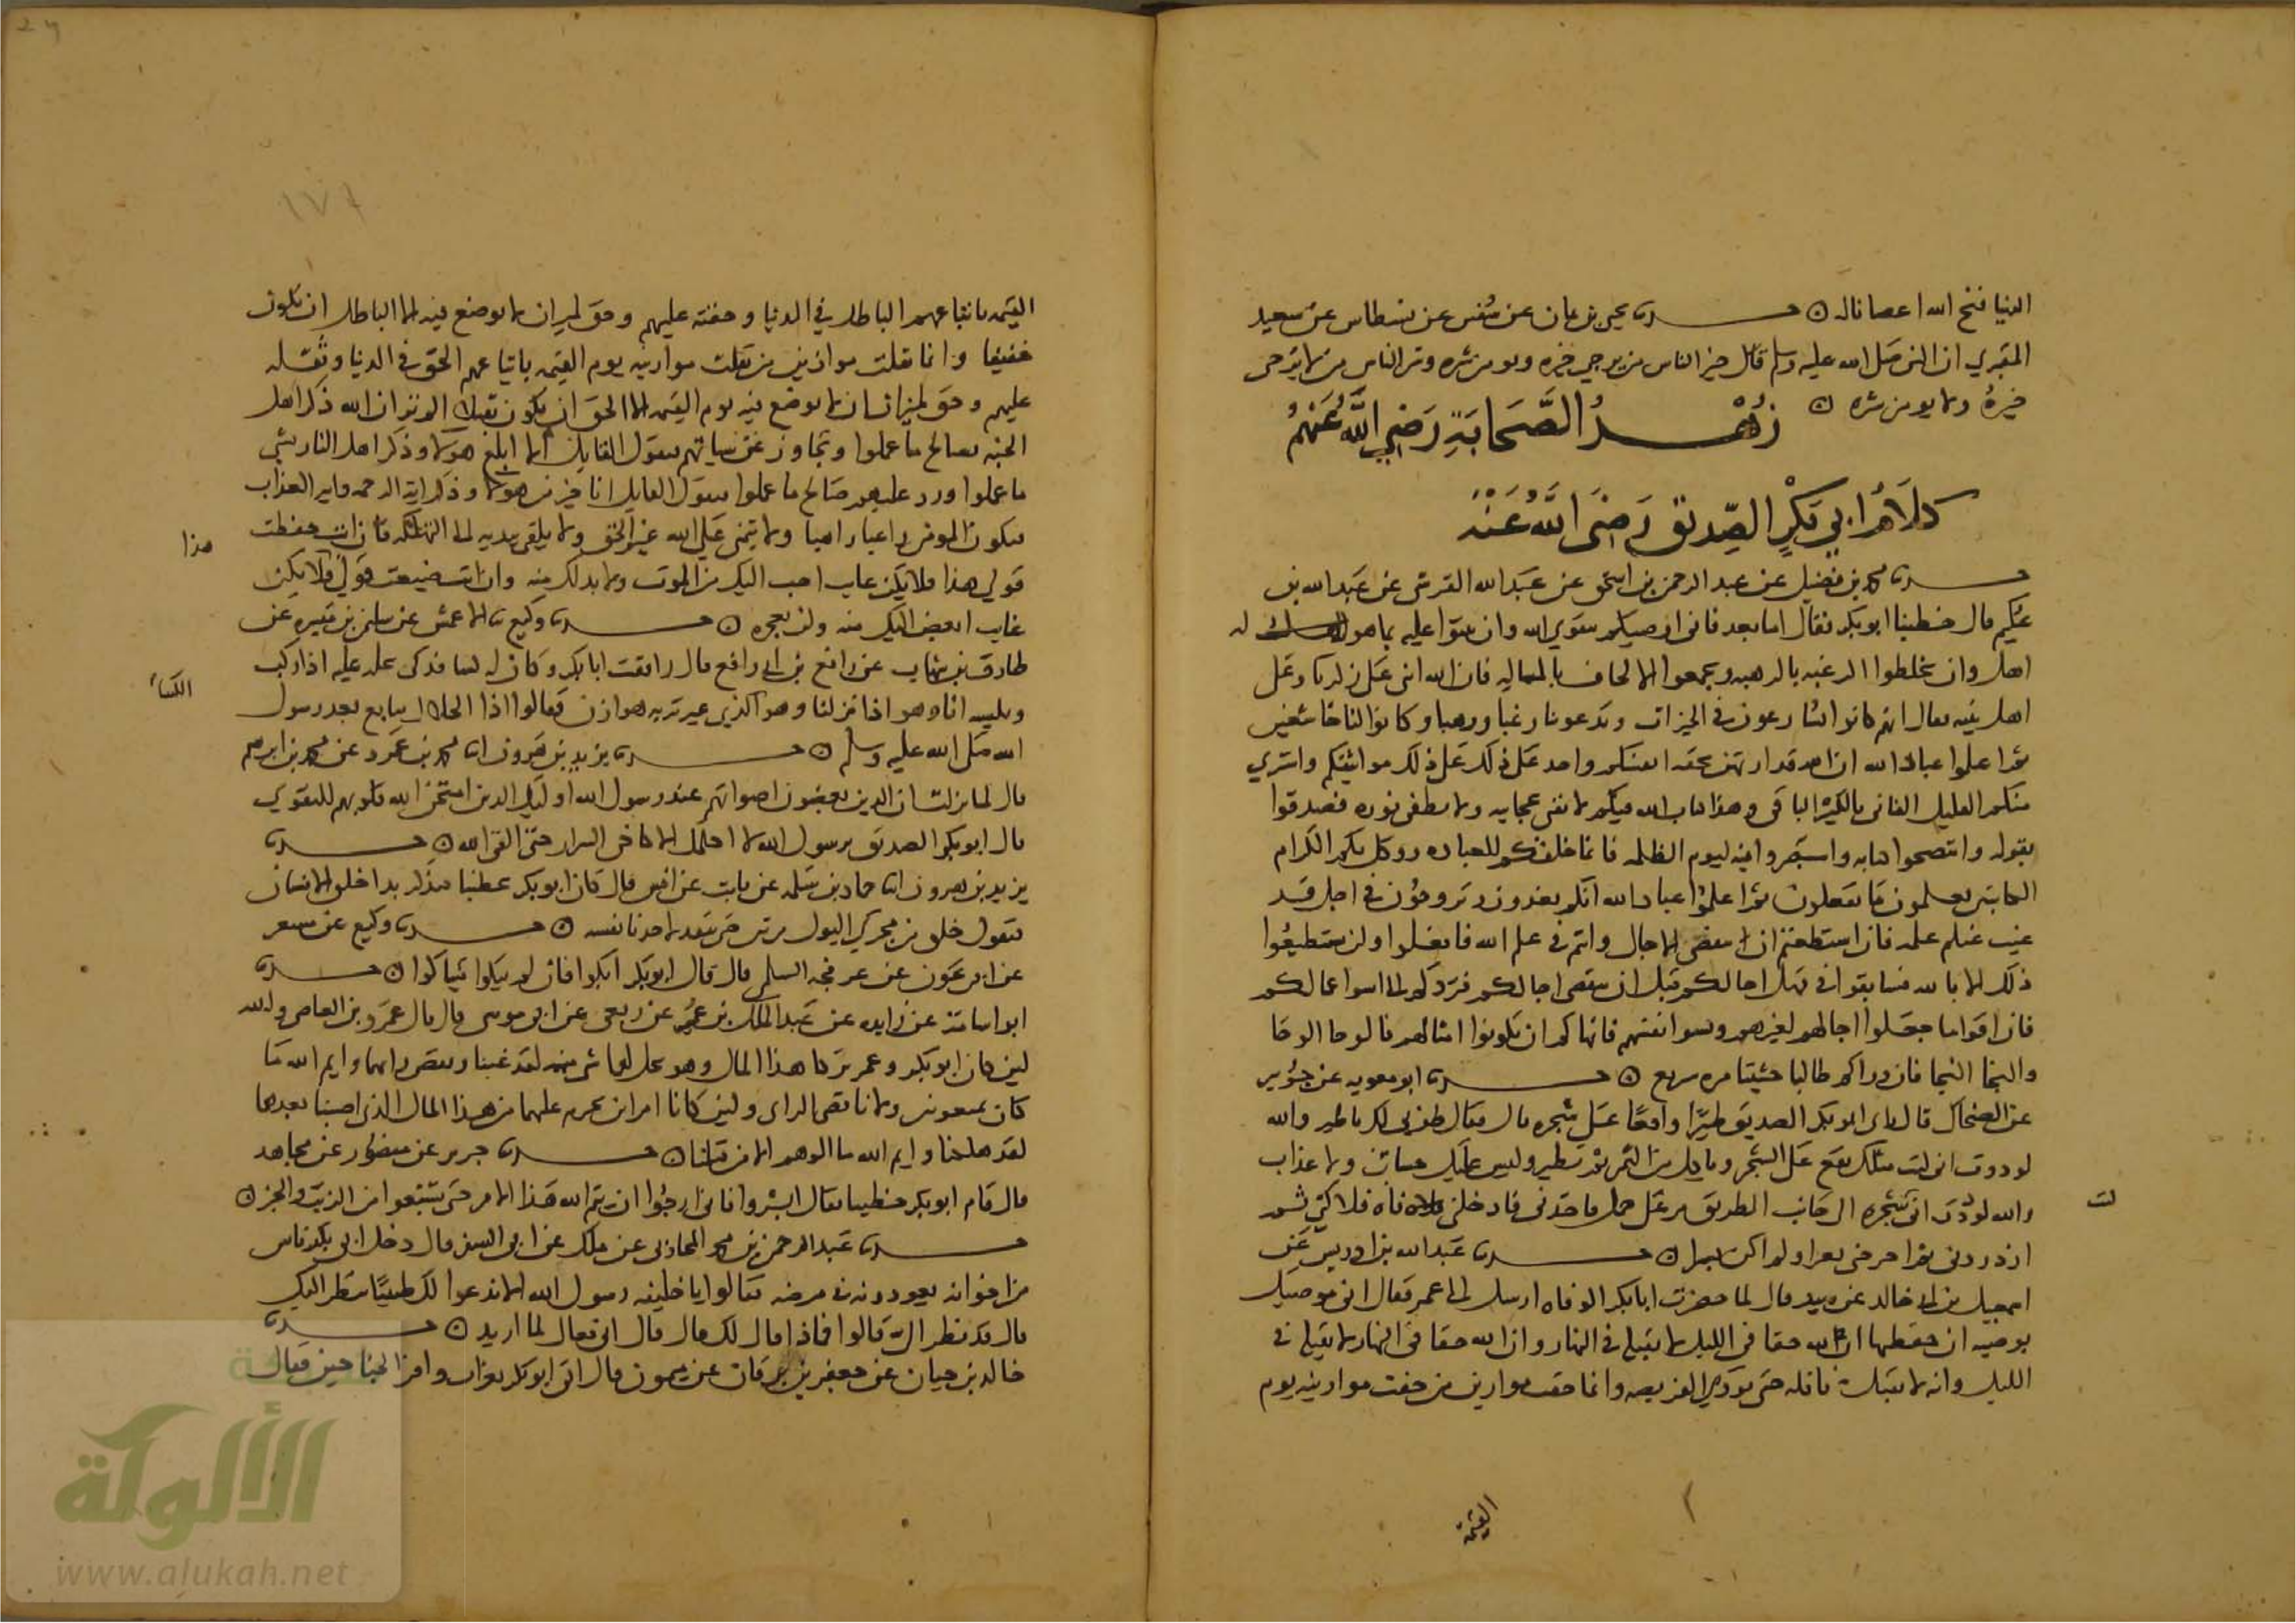 الدنيا فتح الله اعصا ناله ○ حدثنا يحيى بن يمان عن سفين عن بسطاس عن سعيد
المقبري ان النبي صلى الله عليه وسلم قال خير الناس من يرجى خيره ويومن شره وشر الناس من لا يرجى
خيره ولا يومن شره ○ زُهْدُ الصَّحَابَةِ رَضِيَ اللَّهُ عَنْهُمْ
كَلَامُ أَبِي بَكْرٍ الصِّدِّيقِ رَضِيَ اللَّهُ عَنْهُ
حدثنا محمد بن فضيل عن عبد الرحمن بن اسحق عن عبد الله القرشي عن عبد الله بن
عكيم قال خطبنا ابو بكر فقال اما بعد فاني اوصيكم بتقوي الله وان تثنوا عليه بما هو له
اهل وان تخلطوا الرغبه بالرهبه وتجمعوا الالحاف بالمساله فان الله اثنى على زكريا وعلى
اهل بيته فقال انهم كانوا يسارعون في الخيرات ويدعوننا رغبا ورهبا وكانوا لنا خاشعين
ثم اعلموا عباد الله ان الله قد ارتهن بحقه انفسكم واخذ على ذلك على ذلك مواثيقكم واشتري
منكم القليل الفاني بالكثير الباقي وهذا كتاب الله فيكم لا تفنى عجايبه ولا يطفى نوره فصدقوا
بقوله وانتصحوا كتابه واستبصروا فيه ليوم الظلمه فانما خلقكم للعباده ووكل بكم الكرام
الكاتبين يعلمون ما تفعلون ثم اعلموا عباد الله انكم تغدون وتروحون في اجل قد
غيب عنكم علمه فان استطعتم ان تنقضى الاجال وانتم في عمل الله فافعلوا ولن تستطيعوا
ذلك الا بالله فسابقوا في مهل اجالكم قبل ان تنقضى اجالكم فتردكم الى اسوا اعمالكم
فان اقواما جعلوا اجالهم لغيرهم ونسوا انفسهم فانهاكم ان تكونوا امثالهم فالوحا الوحا
والنجا النجا فان وراكم طالبا حثيثا مره سريع ○ حدثنا ابو معويه عن جويبر
عن الضحاك قال راى ابو بكر الصديق طيرا واقعا على شجره فقال طوبى لك يا طير والله
لوددت اني كنت مثلك تقع على الشجر وتاكل من الثمر ثم تطير وليس عليك حساب ولا عذاب
والله لوددت اني شجره الى جانب الطريق مر على جمل فاخذني فادخلني فاه فلاكني ثم
ازدردني ثم اخرجني بعرا ولم اكن بشرا ○ حدثنا عبد الله بن ادريس عن
اسمعيل بن ابي خالد عن زبيد قال لما حضرت ابا بكر الوفاه ارسل الى عمر فقال اني موصيك
بوصيه ان حفظتها ان لله حقا في الليل لا يقبله في النهار وان لله حقا في النهار لا يقبله في
الليل وانه لا يقبل نافله حتى تودي الفريضه وانما خفت موازين من خفت موازينه يوم
القيمة
القيمه باتباعهم الباطل في الدنيا وخفته عليهم وحق لميزان لا يوضع فيه الا الباطل ان يكون
خفيفا وانما ثقلت موازين من ثقلت موازينه يوم القيمه باتباعهم الحق في الدنيا وثقله
عليهم وحق لميزان لا يوضع فيه يوم القيمه الا الحق ان يكون ثقيلا الم تر ان الله ذكر اهل
الجنه بصالح ما عملوا وتجاوز عن سياتهم فيقول القايل الا ابلغ هولا وذكر اهل النار بشي
ما عملوا ورد عليهم صالح ما عملوا فيقول القايل انا خير من هولا وذكر اية الرحمه واية العذاب
ليكون المومن راغبا راهبا ولا يتمنى على الله غير الحق ولا يلقي بيديه الى التهلكه فان انت حفظت
هذا
قولي هذا فلا يكن غايب احب اليك من الموت ولا بد لك منه وان انت ضيعت قولي فلا يكن
غايب ابغض اليك منه ولن تعجزه ○ حدثنا وكيع عن الاعمش عن سليمن بن ميسره عن
طارق بن شهاب عن رافع بن ابي رافع قال رافقت ابا بكر وكان له كسا فدكى يخله عليه اذا ركب
الكساء
ونلبسه انا وهو اذا نزلنا وهو الذي عيرته به هوازن فقالوا اذا الخلال نبايع بعد رسول
الله صلى الله عليه وسلم ○ حدثنا يزيد بن هرون انا محمد بن عمرو عن محمد بن ابرهيم
قال لما نزلت ان الذين يغضون اصواتهم عند رسول الله اوليك الذين امتحن الله قلوبهم للتقوي
قال ابو بكر الصديق يرسول الله لا اكلمك الا كاخي السرار حتى القى الله ○ حدثنا
يزيد بن هرون انا حماد بن سلمه عن ثابت عن انس قال كان ابو بكر يخطبنا فيذكر بدا خلق الانسان
فيقول خلق من مجري البول مرتين حتى يتقذر احدنا نفسه ○ حدثنا وكيع عن مسعر
عن ابي عون عن عرفجه السلمي قال قال ابو بكر ابكوا فان لم تبكوا تباكوا ○ حدثنا
ابو اسامة عن زايده عن عبد الملك بن عمير عن ربعي عن ابي موسى قال قال عمرو بن العاص والله
لين كان ابو بكر وعمر تركا هذا المال وهو يحل لهما شي منه لقد غبنا ونقص رايهما وايم الله ما
كانا بمغبونين ولا ناقصى الراى ولين كانا امراين يحرم عليهما من هذا المال الذي اصبنا بعدهما
لقد هلكنا وايم الله ما الوهم الا من قبلنا ○ حدثنا جرير عن منصور عن مجاهد
قال قام ابو بكر خطيبا فقال ابشروا فاني ارجوا ان يتم الله هذا الامر حتى تشبعوا من الزيت والخبز ○
حدثنا عبد الرحمن بن محمد المحاربي عن ملك عن ابي السفر قال دخل ابي بكر ناس
من اخوانه يعودونه في مرضه فقالوا يا خليفه رسول الله الا ندعوا لك طبيبا ينظر اليك
قال قد نظر الي قالوا فماذا قال لك قال قال اني فعال لما اريد ○ حدثنا
خالد بن حيان عن جعفر بن برقان عن ميمون قال اتي ابو بكر بغراب وافر الجناحين فقال
الألوكة
www.alukah.net